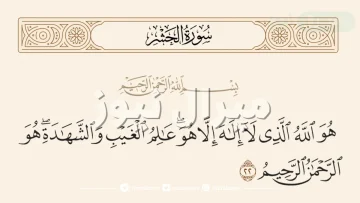 سُورَةُ الحَشْرِ
بِسْمِ اللَّهِ الرَّحْمَٰنِ الرَّحِيمِ
ميرال نيوز
هُوَ ٱللَّهُ ٱلَّذِى لَآ إِلَٰهَ إِلَّا هُوَ ۖ عَٰلِمُ ٱلْغَيْبِ وَٱلشَّهَٰدَةِ ۖ هُوَ
ٱلرَّحْمَٰنُ ٱلرَّحِيمُ ٢٢